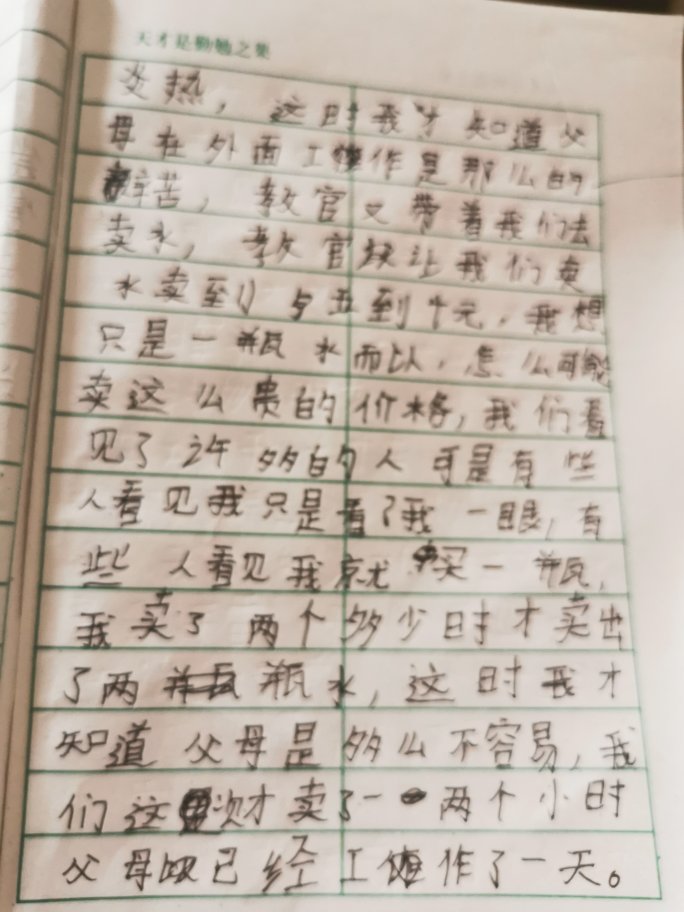 天才是勤勉之集
炎热，这时我才知道父
母在外面工作是那么的
辛苦，教官又带着我们去
卖水，教官让我们卖
水卖到五到十元，我想
只是一瓶水而以，怎么可能
卖这么贵的价格，我们看
见了许多的人可是有些
人看见我只是看了我一眼，有
些人看见我就买一瓶，
我卖了两个多少时才卖出
了两瓶水，这时我才
知道父母是多么不容易，我
们这次才卖了一两个小时
父母已经工作了一天。